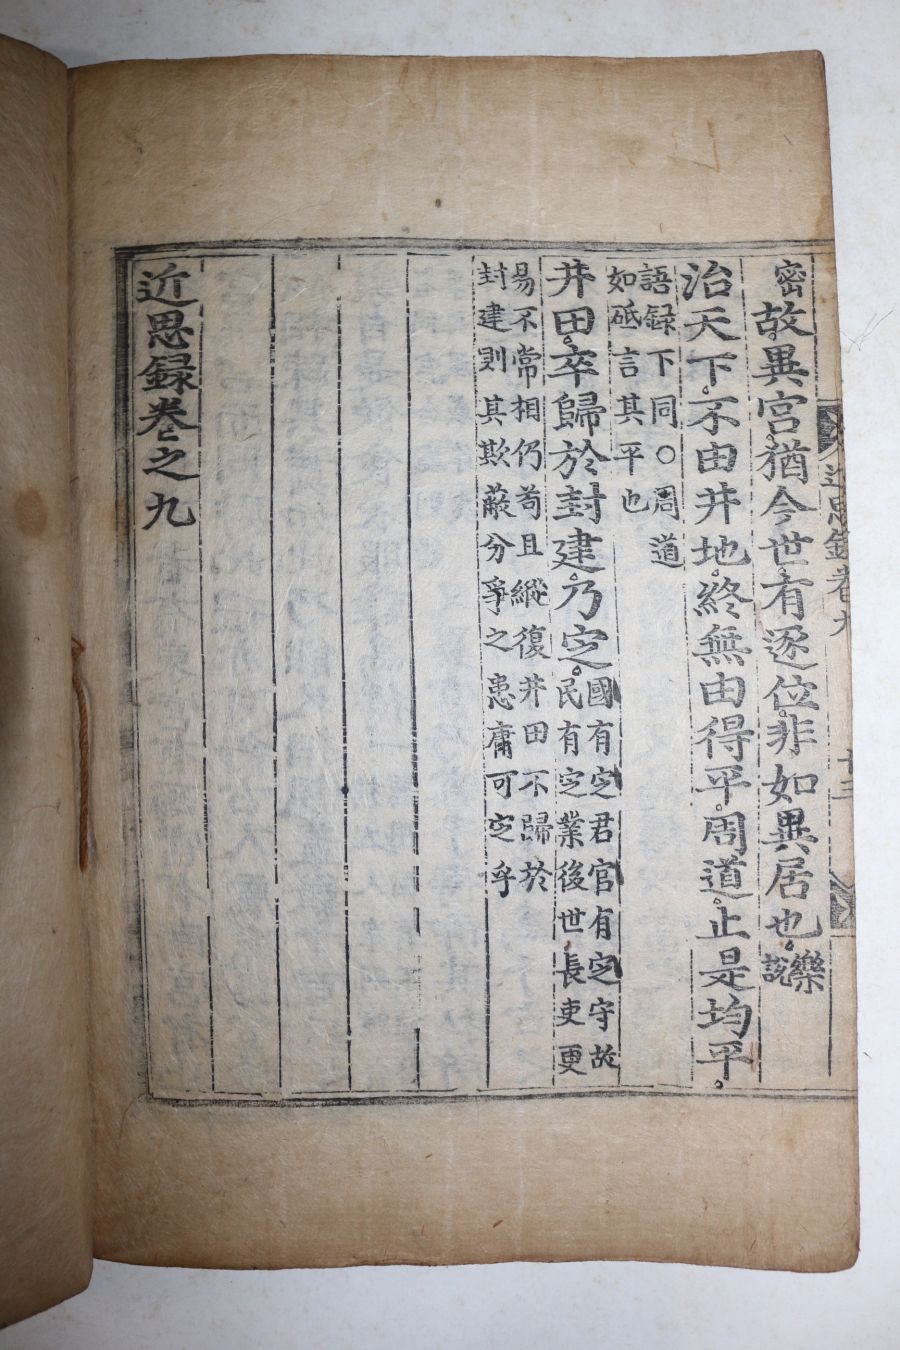 近思錄卷九
廿三
密故異宮猶今世有逐位非如異居也樂
說
治天下不由井地終無由得平周道止是均平
語錄下同○周道
如砥言其平也
井田卒歸於封建乃定國有定君官有定守故
民有定業後世長吏更
易不常相仍苟且縱復井田不歸於
封建則其欺蔽分爭之患庸可定乎
近思録卷之九